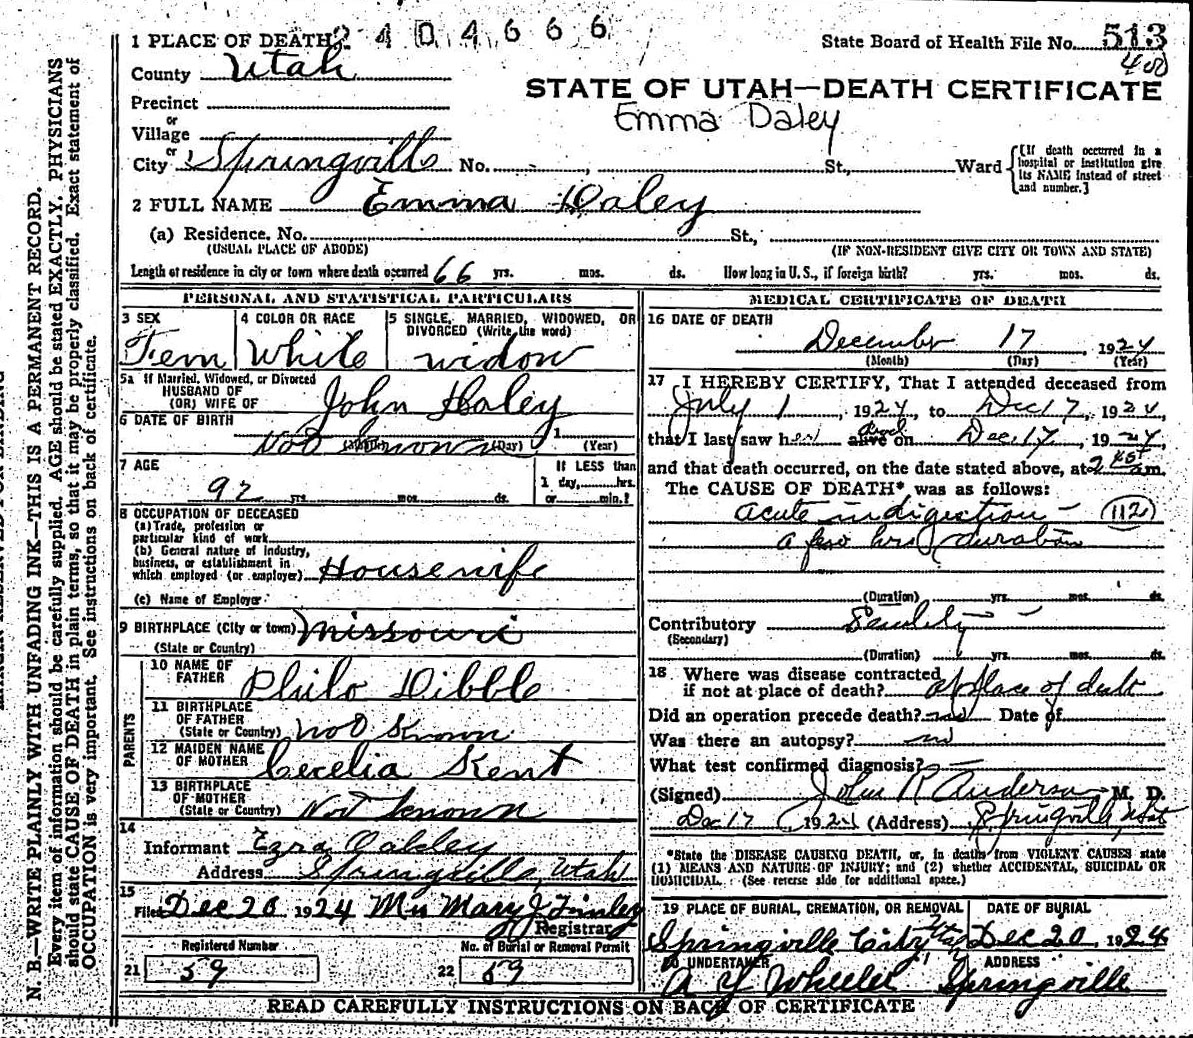 2404666
1 PLACE OF DEATH
State Board of Health File No. 513
400
County Utah
STATE OF UTAH—DEATH CERTIFICATE
Precinct
or
Emma Daley
Village
or
City Springville No. St., Ward
[If death occurred in a hospital or institution give its NAME instead of street and number.]
2 FULL NAME Emma Daley
(a) Residence. No. St.,
(USUAL PLACE OF ABODE) (IF NON-RESIDENT GIVE CITY OR TOWN AND STATE)
Length of residence in city or town where death occurred 66 yrs. mos. ds. How long in U. S., if foreign birth? yrs. mos. ds.
PERSONAL AND STATISTICAL PARTICULARS
3 SEX
Fem
4 COLOR OR RACE
White
5 SINGLE, MARRIED, WIDOWED, OR
DIVORCED (Write the word)
widow
5a If Married, Widowed, or Divorced
HUSBAND OF
(OR) WIFE OF John Daley
6 DATE OF BIRTH
Not known 1
(Month) (Day) (Year)
7 AGE
92 yrs. mos. ds.
If LESS than
1 day, hrs.
or min.?
8 OCCUPATION OF DECEASED
(a) Trade, profession or
particular kind of work
(b) General nature of industry,
business, or establishment in
which employed (or employer) Housewife
(c) Name of Employer
9 BIRTHPLACE (City or town) Missouri
(State or Country)
PARENTS
10 NAME OF
FATHER Philo Dibble
11 BIRTHPLACE
OF FATHER
(State or Country) not Known
12 MAIDEN NAME
OF MOTHER Cecelia Kent
13 BIRTHPLACE
OF MOTHER
(State or Country) Not known
14
Informant Ezra Oakley
Address Springville, Utah
15
Filed Dec 20 1924 Mrs Mary J Finley
Registrar
Registered Number No. of Burial or Removal Permit
21 59 22 59
MEDICAL CERTIFICATE OF DEATH
16 DATE OF DEATH
December 17, 1924
(Month) (Day) (Year)
17 I HEREBY CERTIFY, That I attended deceased from
July 1, 1924, to Dec 17, 1924,
that I last saw her alive on Dec. 17, 1924
dead
and that death occurred, on the date stated above, at 2 45 am.
The CAUSE OF DEATH* was as follows:
acute indigestion — (112)
a few hrs duration
(Duration) yrs. mos. ds.
Contributory Senility
(Secondary)
(Duration) yrs. mos. ds.
18 Where was disease contracted
if not at place of death? at place of death
Did an operation precede death? no Date of
Was there an autopsy? no
What test confirmed diagnosis?
(Signed) John R Anderson M. D.
Dec 17, 1924 (Address) Springville, Utah
*State the DISEASE CAUSING DEATH, or, in deaths from VIOLENT CAUSES state
(1) MEANS AND NATURE OF INJURY; and (2) whether ACCIDENTAL, SUICIDAL OR
HOMICIDAL. (See reverse side for additional space.)
19 PLACE OF BURIAL, CREMATION, OR REMOVAL DATE OF BURIAL
Springville City Utah Dec 20, 1924
20 UNDERTAKER ADDRESS
A Y Wheeler Springville
READ CAREFULLY INSTRUCTIONS ON BACK OF CERTIFICATE
N. B.—WRITE PLAINLY WITH UNFADING INK—THIS IS A PERMANENT RECORD.
Every item of information should be carefully supplied. AGE should be stated EXACTLY. PHYSICIANS
should state CAUSE OF DEATH in plain terms, so that it may be properly classified. Exact statement of
OCCUPATION is very important. See instructions on back of certificate.